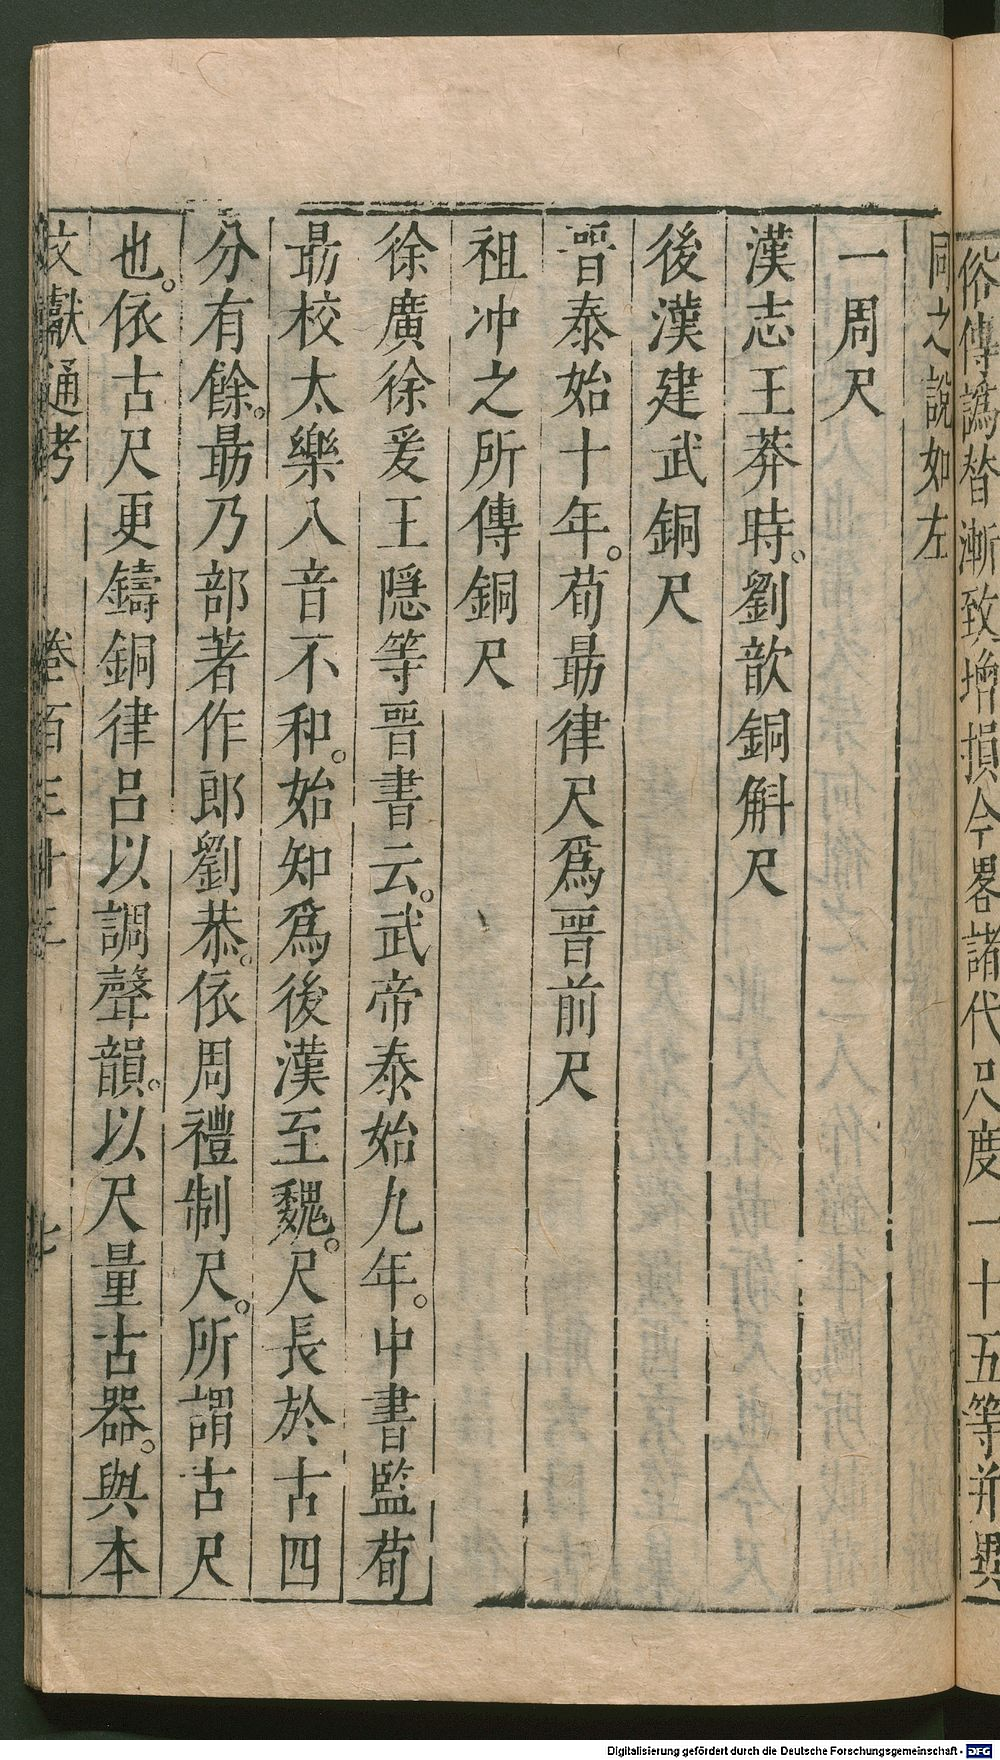 俗傳譌替漸致增損今畧諸代尺度一十五等并異
同之說如左
一周尺
漢志王莽時。劉歆銅斛尺
後漢建武銅尺
晉泰始十年。荀勗律尺爲晉前尺
祖冲之所傳銅尺
徐廣徐爰王隱等晉書云。武帝泰始九年。中書監荀
勗校太樂八音不和。始知爲後漢至魏。尺長於古四
分有餘。勗乃部著作郎劉恭。依周禮制尺。所謂古尺
也。依古尺更鑄銅律呂以調聲韻。以尺量古器。與本
文獻通考 卷百三十三 七
Digitalisierung gefördert durch die Deutsche Forschungsgemeinschaft - DFG